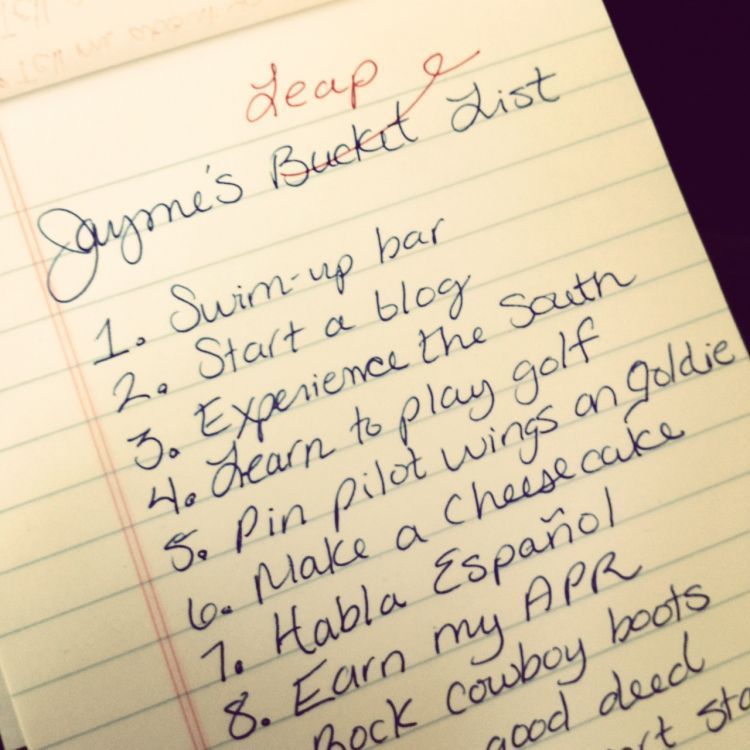 Leap
Jayme's Bucket List
1. Swim-up bar
2. Start a blog
3. Experience the South
4. Learn to play golf
5. Pin pilot wings on goldie
6. Make a cheesecake
7. Habla Español
8. Earn my APR
Rock cowboy boots
good deed